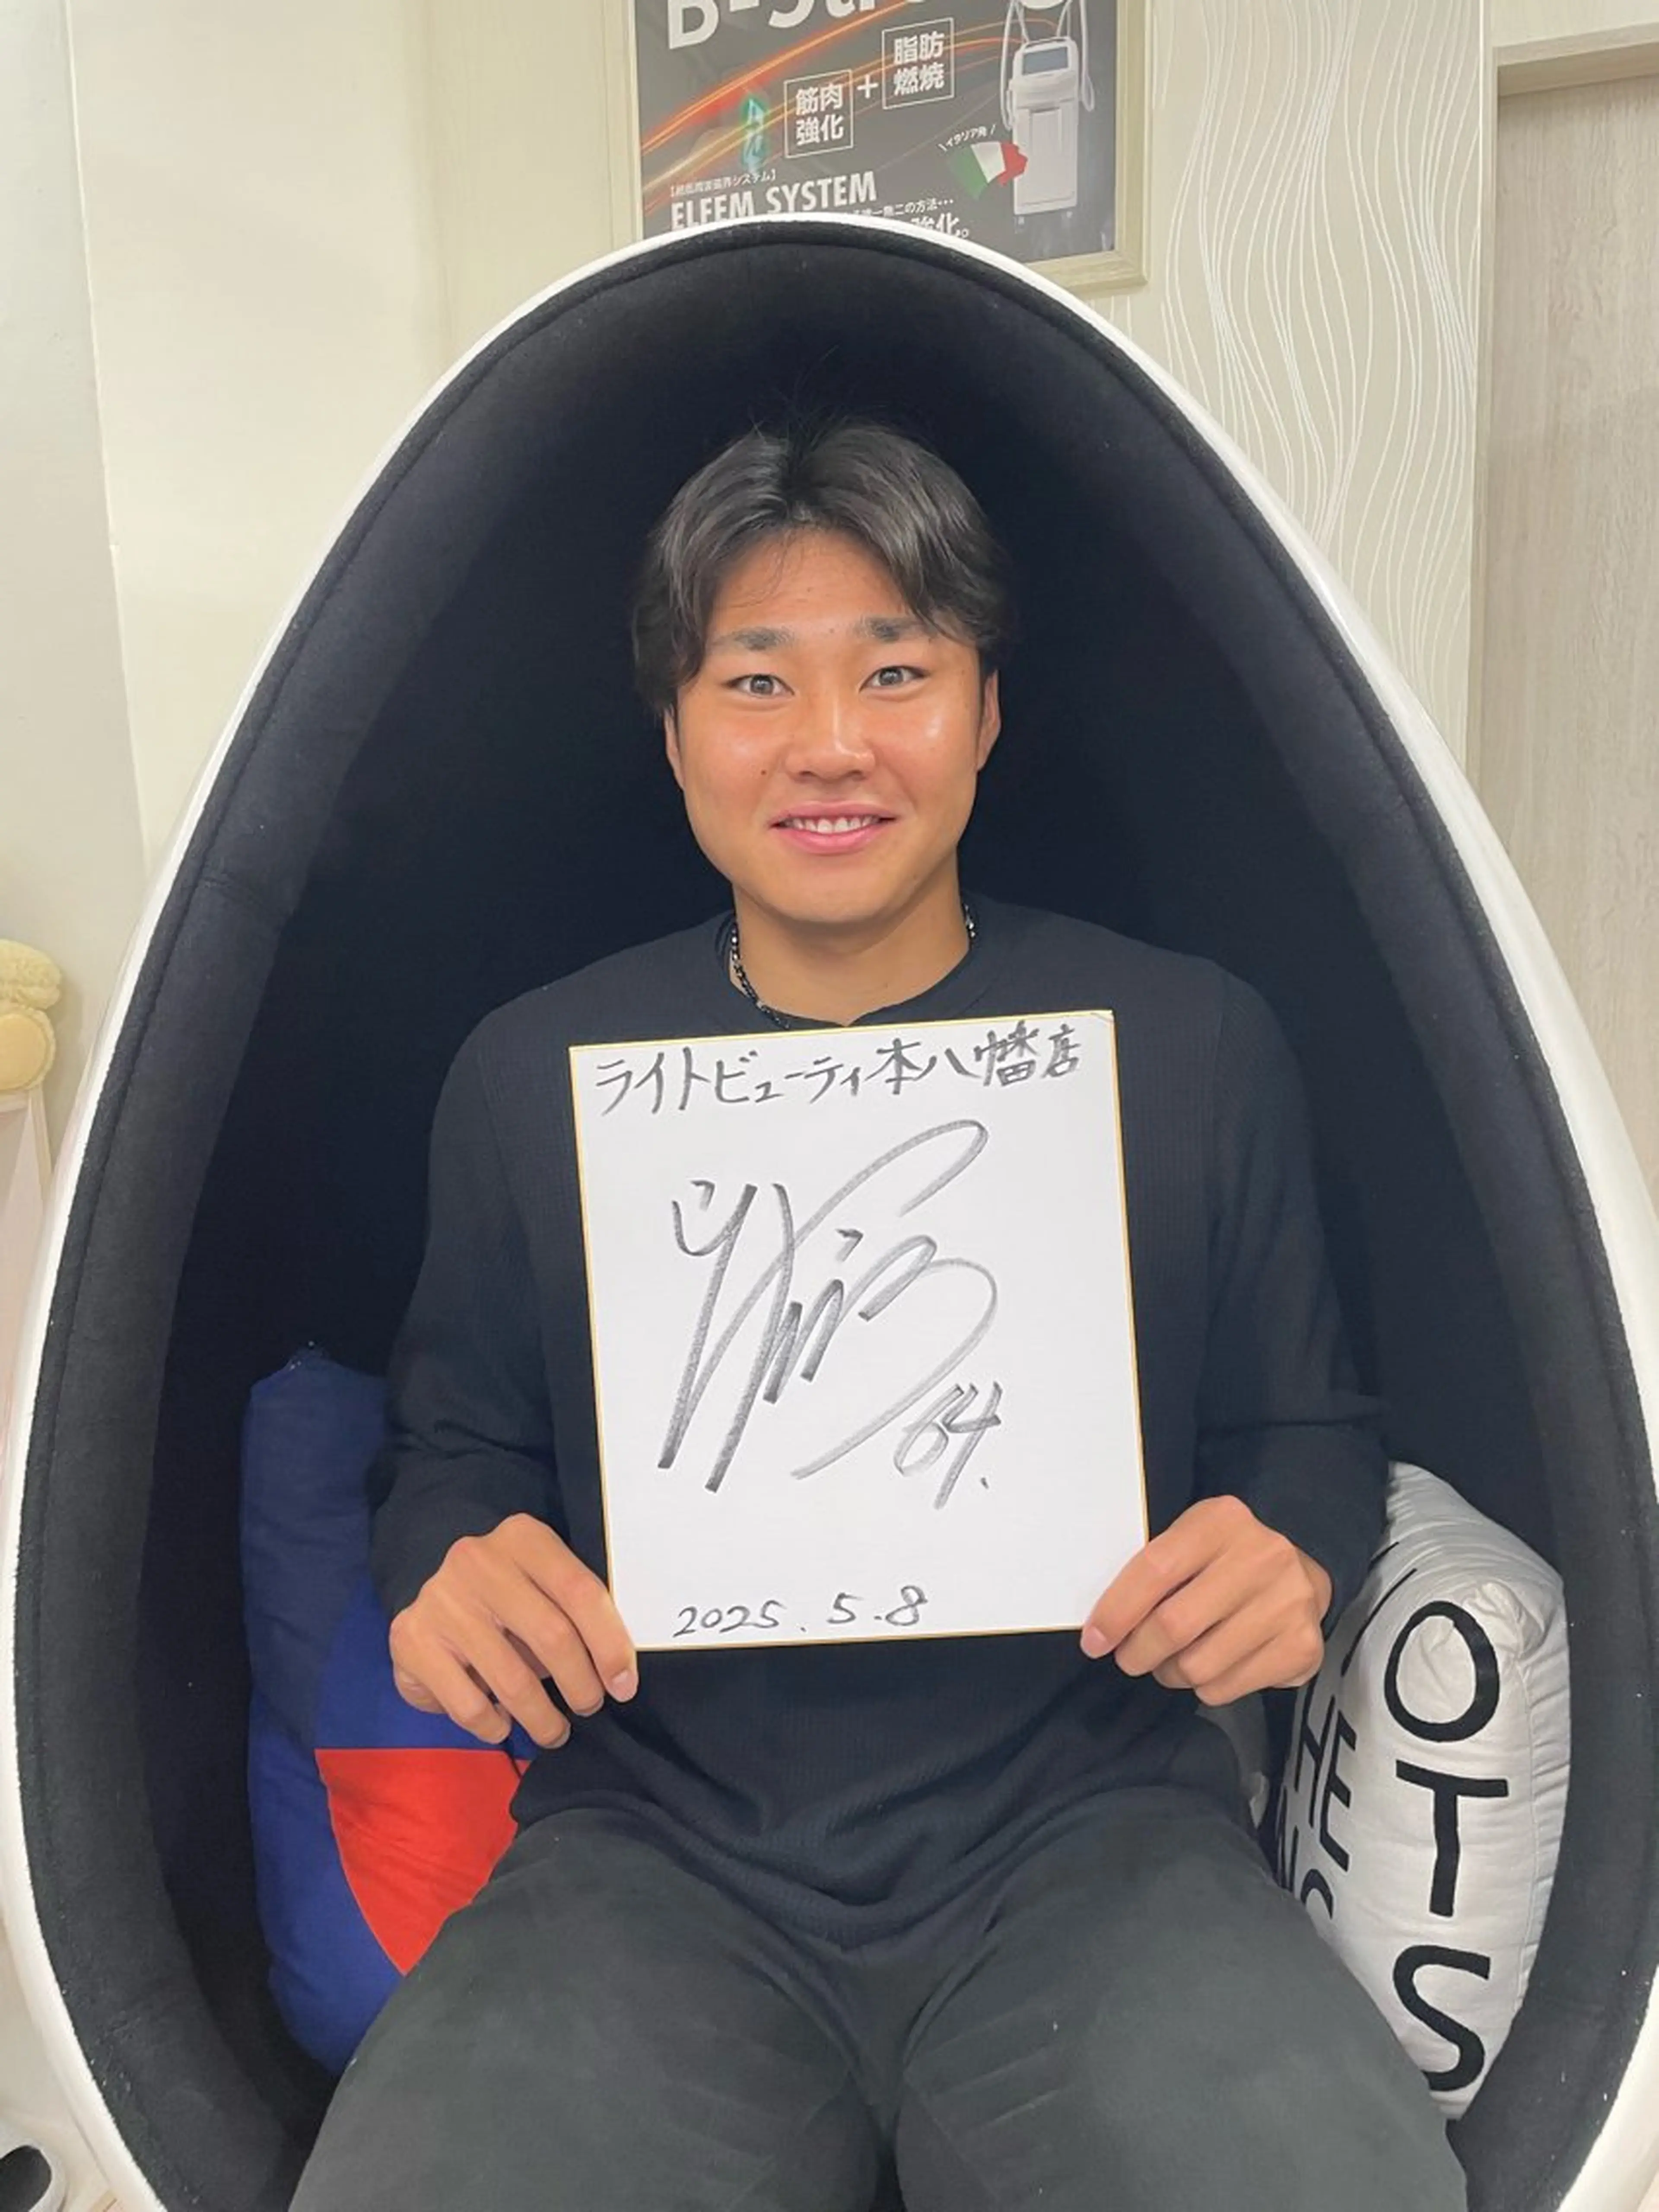 筋肉
強化
+
脂肪
燃焼
\イタリア発/
【超低周波磁界システム】
ELFEM SYSTEM
強化。
ライトビューティ本八幡店
64.
2025.5.8
O
T
S
HE